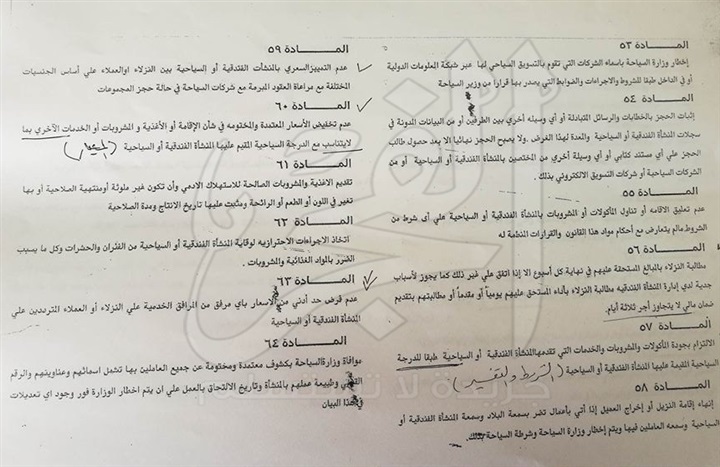 المـــادة ٥٣
إخطار وزارة السياحة باسماء الشركات التي تقوم بالتسويق السياحي لها عبر شبكة المعلومات الدولية
أو في الداخل طبقا للشروط والاجراءات والضوابط التي يصدر بها قرارا من وزير السياحة
المـــادة ٥٤
إثبات الحجز بالخطابات والرسائل المتبادلة أو أي وسيله أخري بين الطرفين أو من البيانات المدونة في
سجلات المنشأة الفندقية أو السياحية والمعدة لهذا الغرض .ولا يصبح الحجز نهائيا الا بعد حصول طالب
الحجز علي أي مستند كتابي أو أي وسيلة أخري من المختصين بالمنشأة الفندقية أو السياحية أو من
الشركات السياحية أو شركات التسويق الالكتروني بذلك.
المـــادة ٥٥
عدم تعليق الاقامه أو تناول المأكولات أو المشروبات بالمنشأة الفندقية أو السياحية علي أى شرط من
الشروط مالم يتعارض مع أحكام مواد هذا القانون والقرارات المنظمة له
المـــادة ٥٦
مطالبة النزلاء بالمبالغ المستحقة عليهم في نهاية كل أسبوع الا إذا اتفق علي غير ذلك كما يجوز لأسباب
جدية لدي إدارة المنشأة الفندقيه مطالبة النزلاء بأداء المستحق عليهم يومياً أو مقدماً أو مطالبتهم بتقديم
ضمان مالي لا يتجاوز أجر ثلاثة أيام.
المـــادة ٥٧
الالتزام بجودة المأكولات والمشروبات والخدمات التي تقدمها المنشأة الفندقية أو السياحية طبقا للدرجة
السياحية المقيمة عليها المنشأة الفندقية أو السياحية
المـــادة ٥٨
إنهاء إقامة النزيل أو إخراج العميل إذا أتي بأعمال تضر بسمعة البلاد وسمعة المنشأة الفندقية أو
السياحية وسمعه العاملين فيها ويتم إخطار وزارة السياحة وشرطة السياحة بذلك.
المـــادة ٥٩
عدم التمييز السعري بالمنشأت الفندقية أو السياحية بين النزلاء اوالعملاء علي أساس الجنسيات
المختلفة مع مراعاة العقود المبرمة مع شركات السياحة في حالة حجز المجموعات
المـــادة ٦٠
عدم تخفيض الأسعار المعتمدة والمختومه في شأن الإقامة أو الأغذية و المشروبات أو الخدمات الآخري بما
لايتناسب مع الدرجة السياحية المقيم عليها المنشأة الفندقية أو السياحية
المـــادة ٦١
تقديم الاغذية والمشروبات الصالحة للاستهلاك الادمي وأن تكون غير ملوثة أومنتهية الصلاحية أو بها
تغير في اللون أو الطعم أو الرائحة ومثبت عليها تاريخ الانتاج ومدة الصلاحية
المـــادة ٦٢
اتخاذ الاجراءات الاحترازيه لوقاية المنشأة الفندقية أو السياحية من الفئران والحشرات وكل ما يسبب
الضرر بالمواد الغذائية والمشروبات .
المـــادة ٦٣
عدم فرض حد أدني من الاسعار باي مرفق من المرافق الخدمية علي النزلاء او العملاء المترددين علي
المنشأة الفندقية أو السياحية
المـــادة ٦٤
موافاة وزارة السياحة بكشوف معتمدة ومختومة عن جميع العاملين بها تشمل اسمائهم وعناوينهم والرقم
القومي وطبيعة عملهم بالمنشأة وتاريخ الالتحاق بالعمل علي ان يتم اخطار الوزارة فور وجود اي تعديلات
في هذا البيان